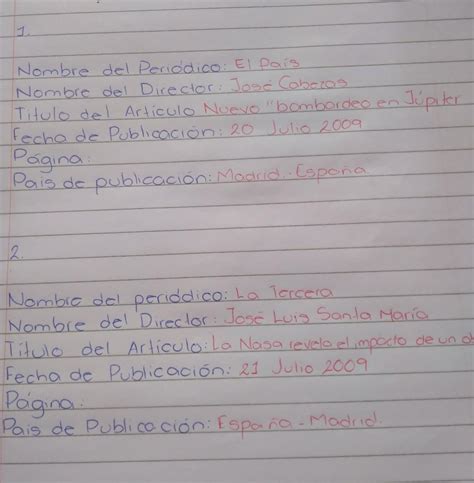 1.
Nombre del Periódico: El País
Nombre del Director: José Cabezas
Titulo del Articulo Nuevo "bombardeo en Júpiter
Fecha de Publicación: 20 Julio 2009
Página:
Pais de publicación: Madrid - España
2.
Nombre del periódico: La Tercera
Nombre del Director: José Luis Santa María
Titulo del Artículo: La Nasa revela el impacto de un
Fecha de Publicación: 21 Julio 2009
Página:
Pais de Publicación: España - Madrid.